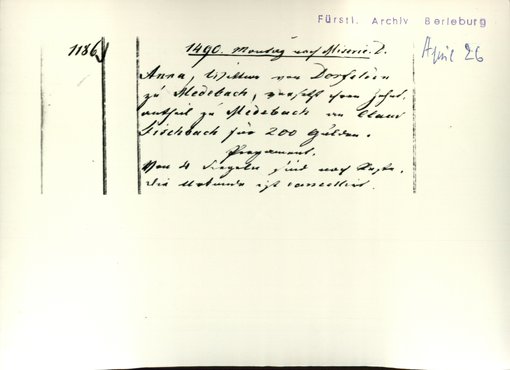 Fürstl. Archiv Berleburg
1186
1490. Montag nach Miseric. D.
April 26
Anna, Wittwe von Dorfelden
zu Medebach, versetzt ihren Zehnt-
antheil zu Medebach an Claus
Fischbach für 200 Gulden.
Pergament.
Von 4 Siegeln sind noch Reste.
Die Urkunde ist cancellirt.